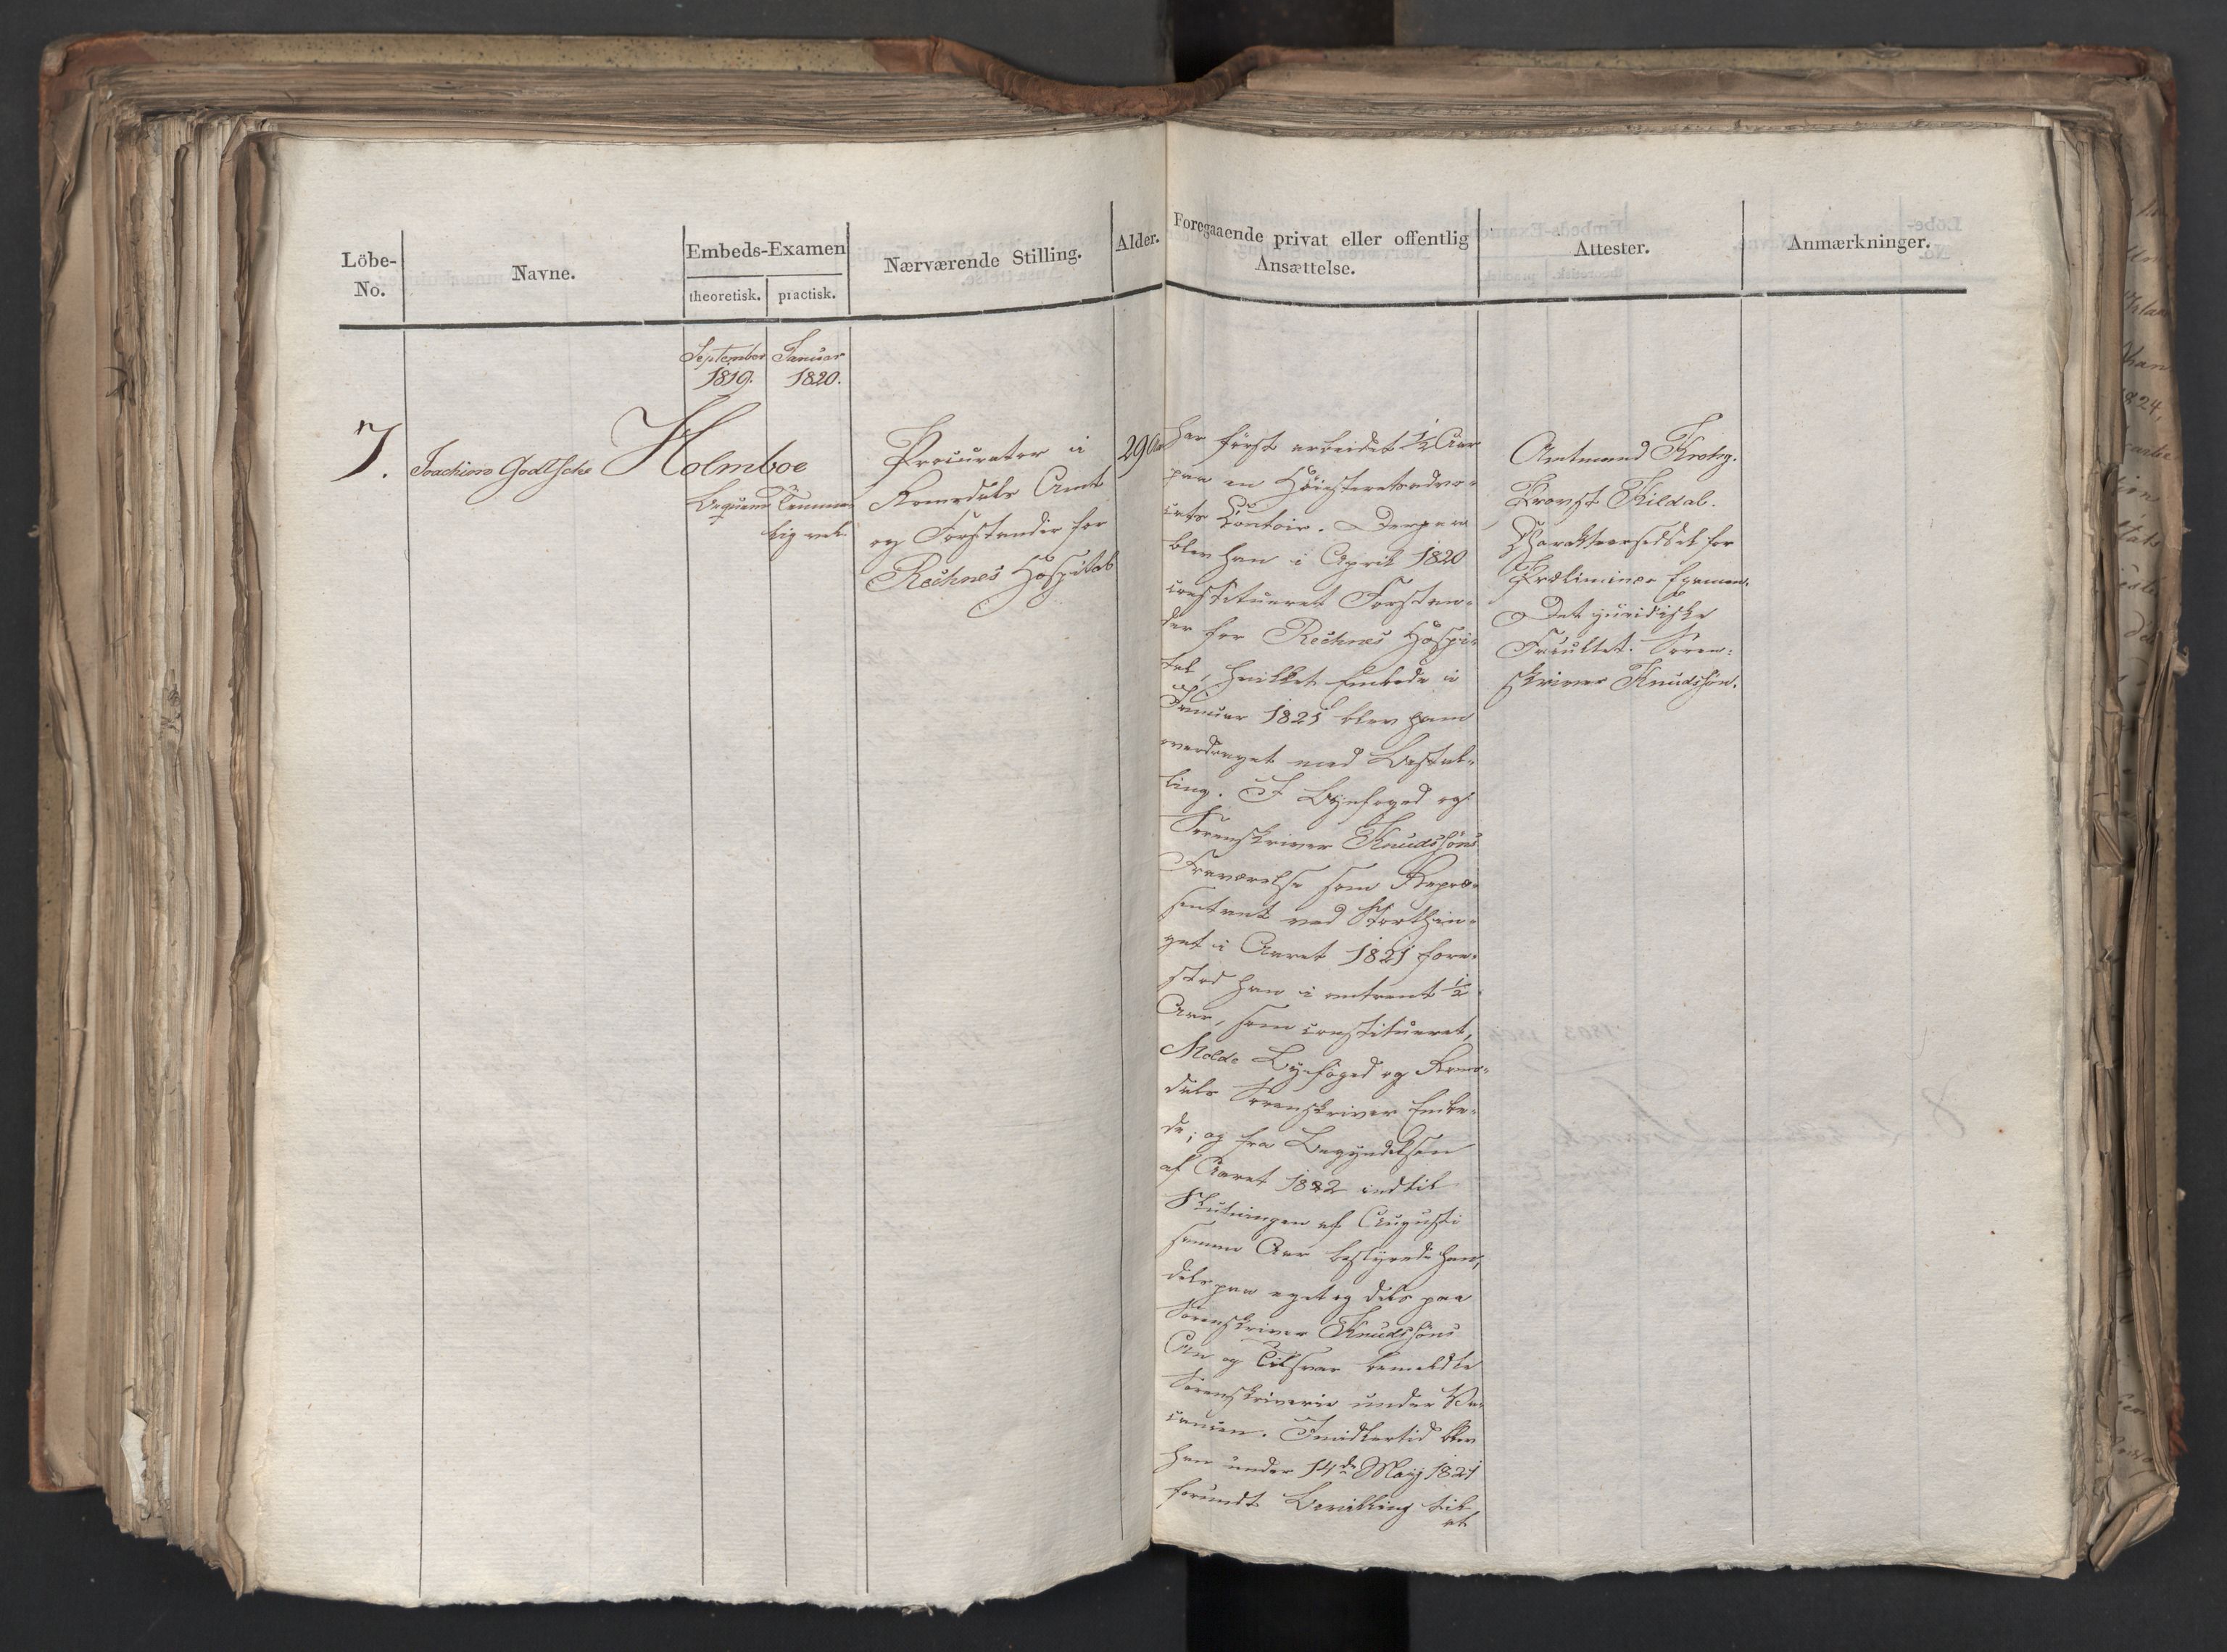 Löbe-
No.
Navne.
Embeds-Examen
theoretisk.
practisk.
Nærværende Stilling.
Alder.
Foregaaende privat eller offentlig
Ansættelse.
Attester.
Anmærkninger.
September
1819.
Januar
1820.
7.
Joachim Godtsche Holmboe
Beqvem
Temme-
lig vel
Procurator i
Romsdals Amt
og Forstander for
Rechnes Hospital
29 Aar
har först arbeidet ½ Aar
paa en Höiesteretsadvo-
cats Contoir. Derpaa
blev han i April 1820
constitueret Forstan-
der for Rechnes Hospi-
tal, hvilket Embede i
Januar 1821 blev ham
overdraget med Bestal-
ling. I Byefoged og
Sorenskriver Knudsöns
Fraværelse som Repræ-
sentant ved Storthin-
get i Aaret 1821 fore-
stod han i omtrent ½
Aar, som constitueret,
Molde Byefoged og Roms-
dals Sorenskriver Embe-
de; og fra Begyndelsen
af Aaret 1822 indtil
Slutningen af Augusti
samme Aar bestyrede han,
dels paa eget og dels paa
Sorenskriver Knudssöns
An og Tilsvar bemeldte
Sorenskriverie under Va-
cancen. Imidlertid blev
han under 14de Maij 1821
forundt Bevilling til
at
Amtmand Krohg.
Provst Kildal.
Charakteerseddel for
Præliminær Examen.
Det juridiske
Facultet. Soren-
skriver Knudssön.